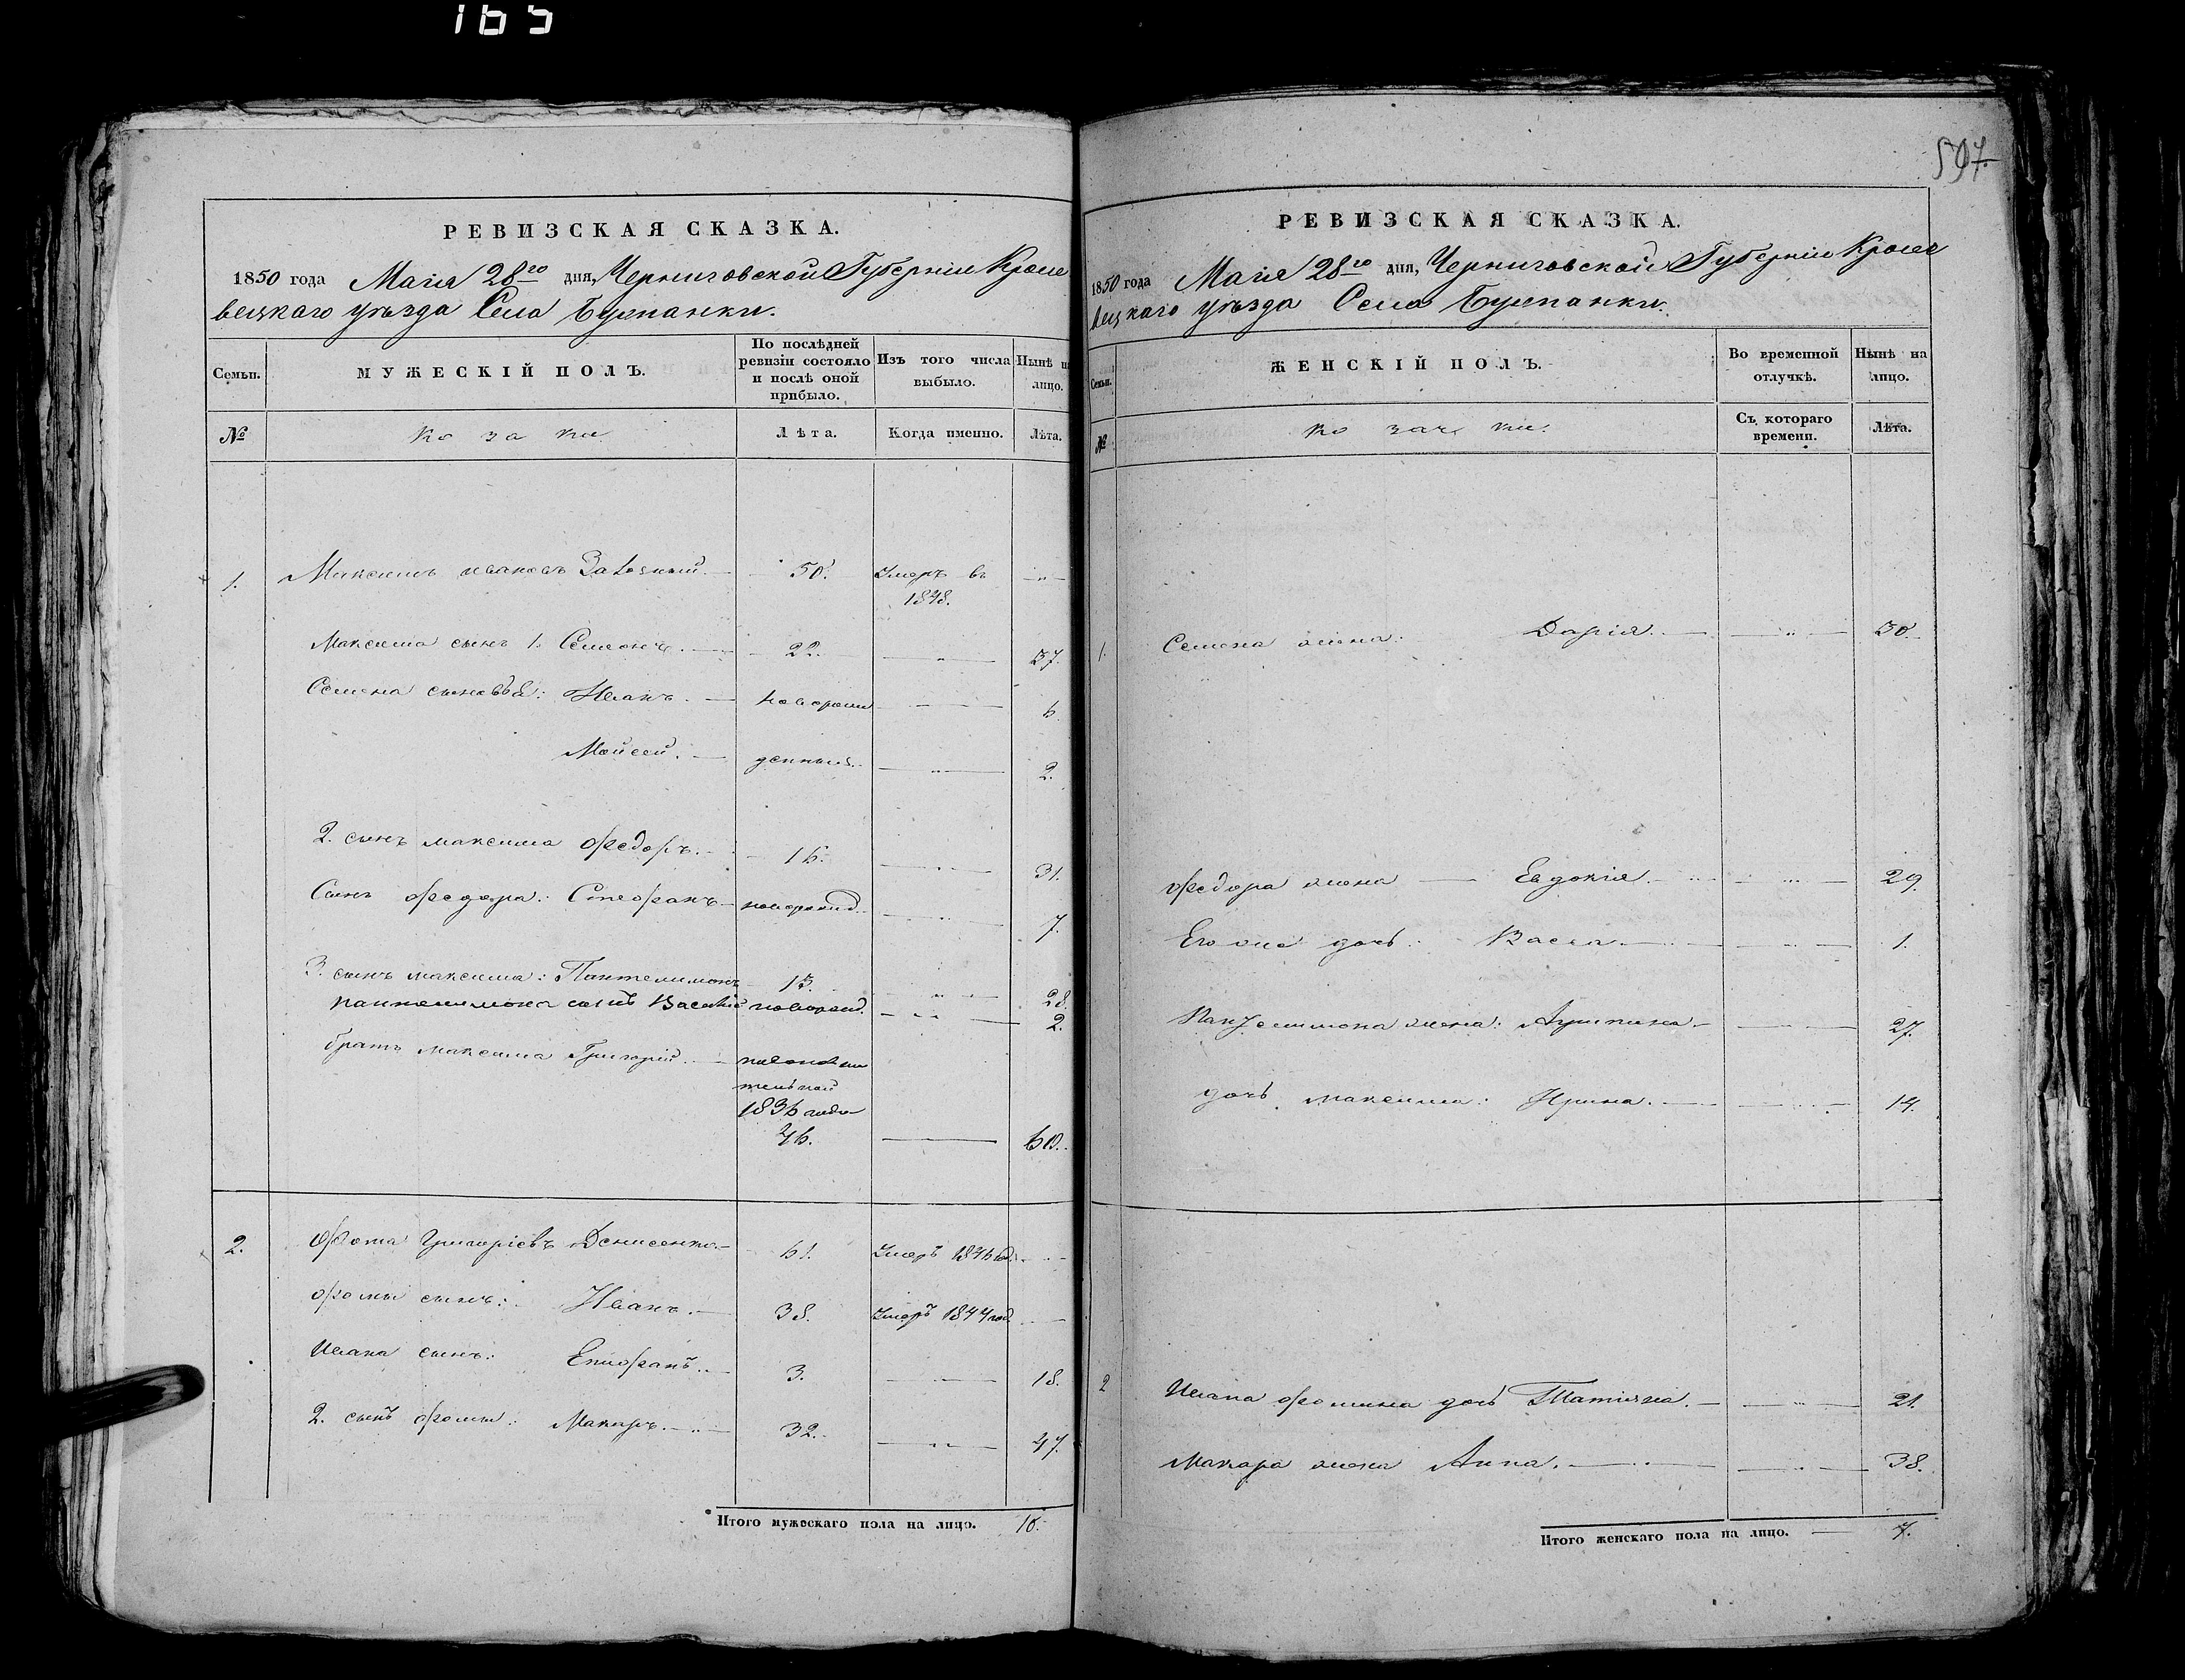 165
597.
РЕВИЗСКАЯ СКАЗКА.
1850 года Маія 28го дня, Черниговской Губерніи Кроле
вецкаго уѣзда Села
Семьи.
МУЖЕСКІЙ ПОЛЪ.
По послѣдней ревизіи состояло и послѣ оной прибыло.
Изъ того числа выбыло.
Нынѣ на лицо.
№
Козаки
Лѣта.
Когда именно.
Лѣта.
1. Максимъ Ивановъ — 50. Умеръ въ — " —
1848.
Максима сынъ 1. Семенъ. — 22. — " — 37.
Семена сыновья: Иванъ. — новорож — 6.
Мойсей. — денные. — " — 2.
2. сынъ Максима Федоръ. — 16. — " — 31.
Сынъ Федора: Стефанъ — новорожд. — " — 7.
3. сынъ Максима: Пантелимонъ 13. — " — 28.
Пантелимона сынъ Василій новорожд. — " — 2.
братъ Максима Григорій. —
1836 года
46. — 60.
2. Фома Григоріевъ Денисенко — 61. Умеръ 1846 год. — " —
Фомы сынъ: Иванъ. — 38. Умеръ 1844 год. —
Ивана сынъ: Епифанъ. — 3. — " — 18.
2. сынъ Фомы: Макаръ. — " — 32. — " — 47.
Итого мужескаго пола на лицо. 10.
РЕВИЗСКАЯ СКАЗКА.
1850 года Маія 28го дня, Черниговской Губерніи Кроле
вецкаго уѣзда Села
Семьи.
ЖЕНСКІЙ ПОЛЪ.
Во временной отлучкѣ.
Нынѣ на лицо.
№
Козачки.
Съ котораго времени.
Лѣта.
1. Семена жена: Дарія. — " — 30.
Федора жена — Евдокія. — " — 29.
Его же дочь: Васса. — " — 1.
Пантелимона жена: Агрипина. — " — 27.
дочь Максима: Ирина. — " — 14.
2 Ивана Фомина дочь Татіяна. — " — 21.
Макара жена Анна. — " — 38.
Итого женскаго пола на лицо. — 7.